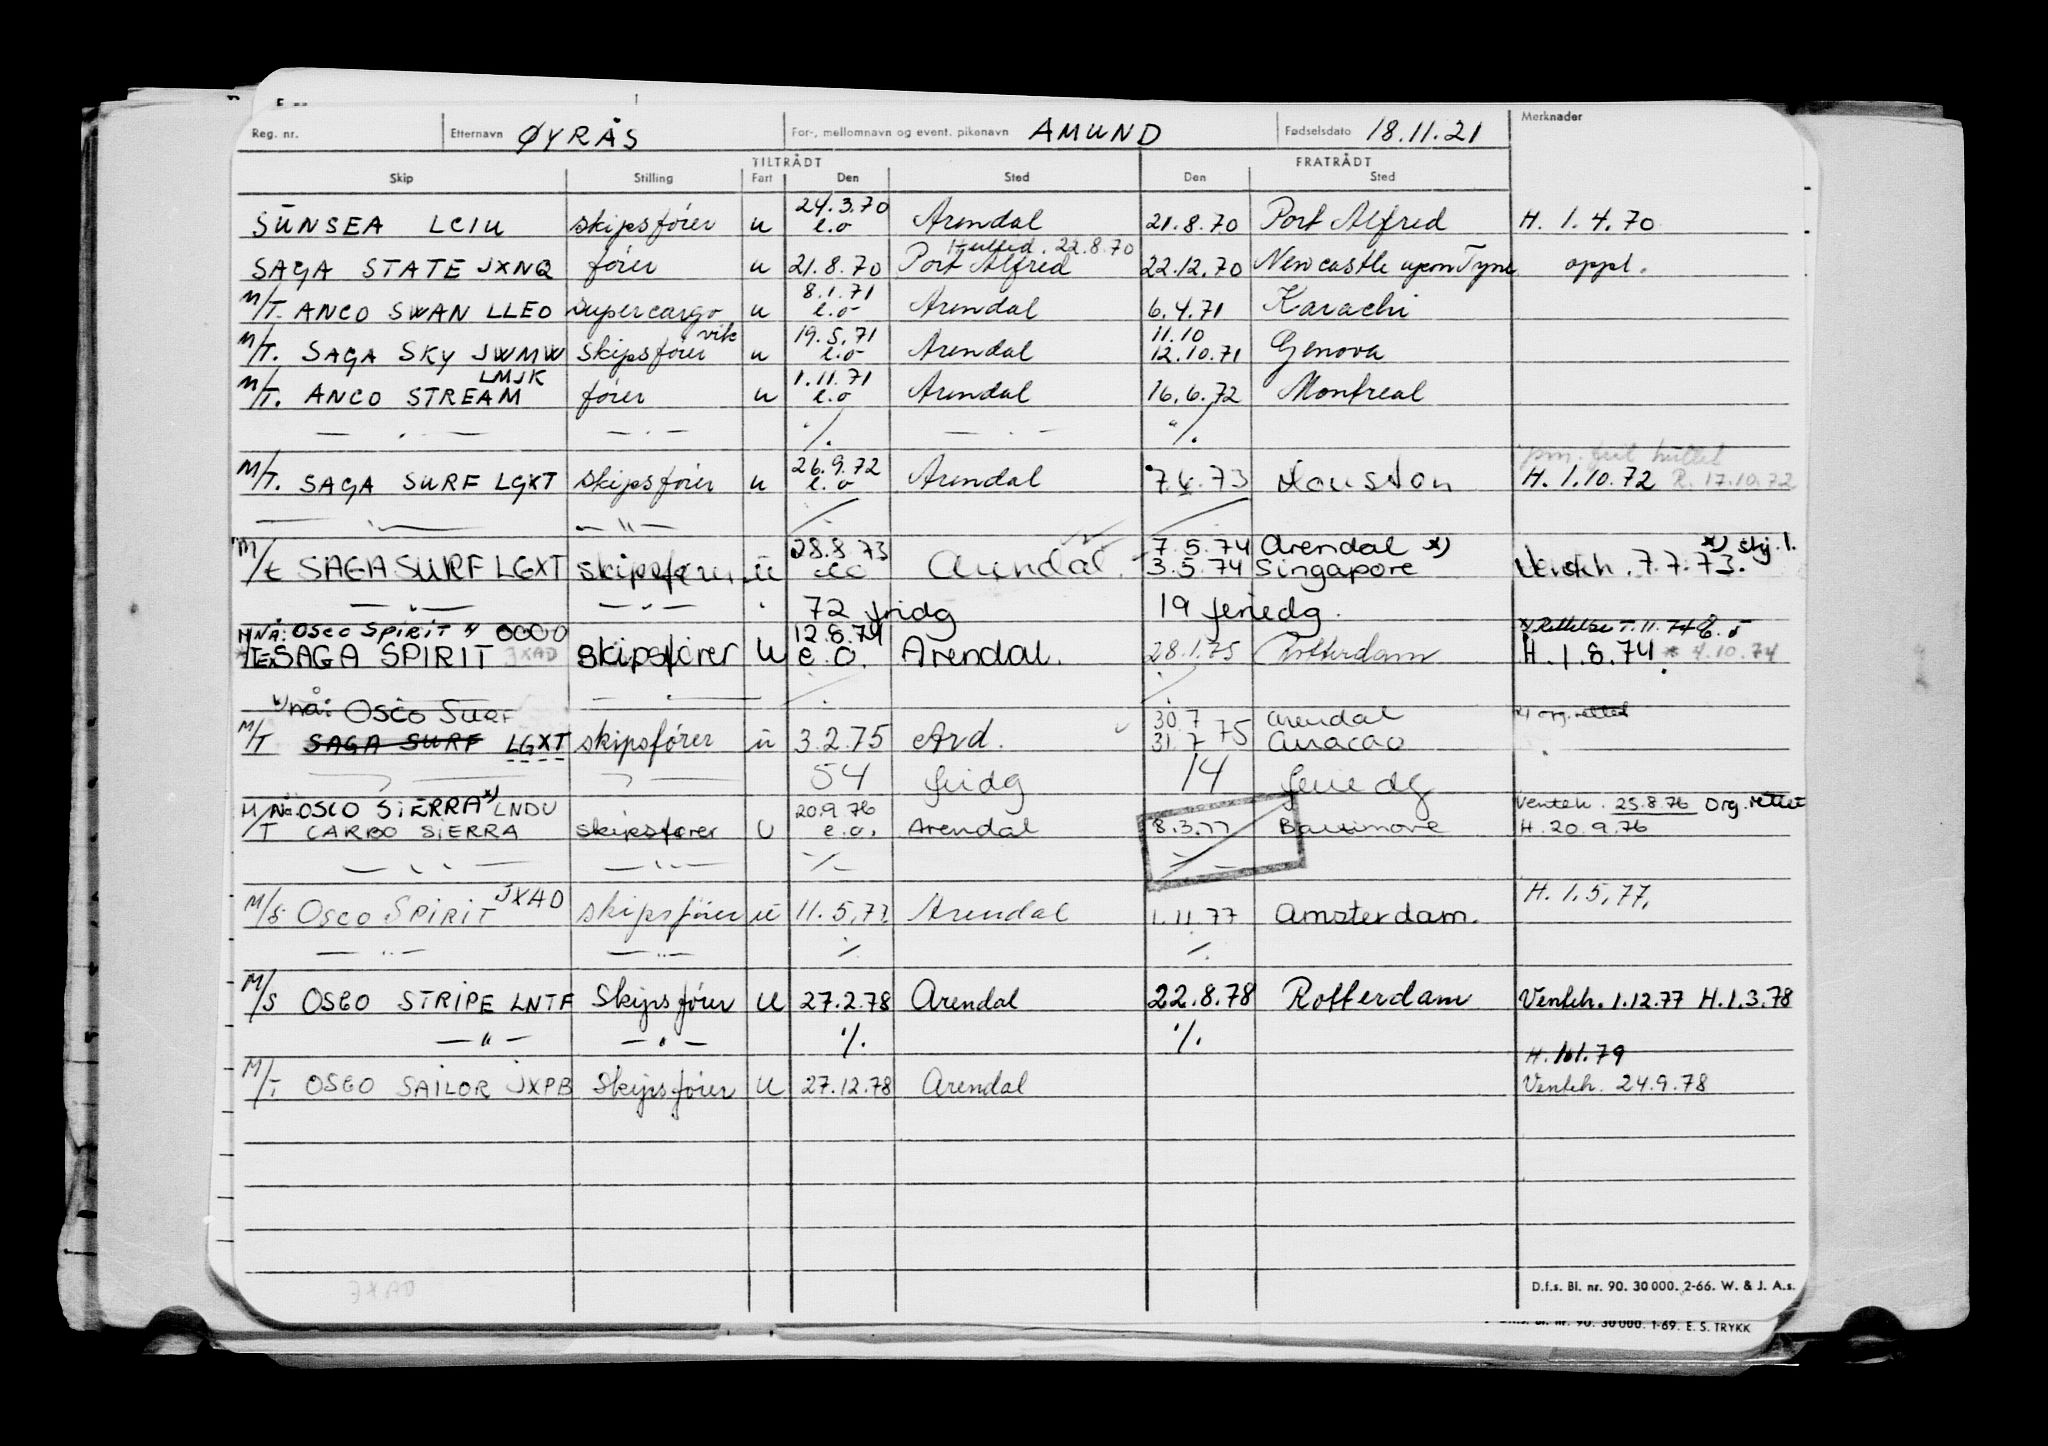 Reg. nr. Etternavn ØYRÅS For-, mellomnavn og event. pikenavn AMUND Fødselsdato 18.11.21 Merknader
TILTRÅDT FRATRÅDT
Skip Stilling Fart Den Sted Den Sted
24.3.70
SUNSEA LCIU skipsfører u e.o Arendal 21.8.70 Port Alfred H. 1.4.70
Hutted. 22.8.70
SAGA STATE JXNQ fører u 21.8.70 Port Alfred 22.12.70 Newcastle upon Tyne oppl.
8.1.71
M/T. ANCO SWAN LLEO supercargo u e.o Arendal 6.4.71 Karachi
vik 19.5.71 11.10
M/T. SAGA SKY JWMW skipsfører u e.o Arendal 12.10.71 Genova
LMJK 1.11.71
M/T. ANCO STREAM fører u e.o Arendal 16.6.72 Montreal
— " — — " — ·/. — " — ·/.
26.9.72
M/T. SAGA SURF LGXT skipsfører u e.o Arendal 7.4.73 Houston H. 1.10.72 R. 17.10.72
— " — — " — ·/.
28.8.73 7.5.74 Arendal x) x) skj. 1.
M/t SAGA SURF LGXT skipsfører u eo Arendal. 3.5.74 Singapore Venteh. 7.7.73.
— " — — " — " 72 fridg 19 feriedg.
NÅ: OSCO SPIRIT 12.8.74 x) Rettelse T. 11.74
M/T Ex SAGA SPIRIT JXAD skipsfører U e.o. Arendal. 28.1.75 Rotterdam H. 1.8.74 * 4.10.74
— " —
x) nå: OSCO SURF 30.7 Arendal x) org. rettet
M/T SAGA SURF LGXT skipsfører u 3.2.75 Ard. 31.7 75 Curacao
54 fridg 14 feriedg
Nå: OSCO SIERRA x) LNDU 20.9.76 Venteh. 25.8.76 Org. rettet
M/T CARBO SIERRA skipsfører U e.o. Arendal 8.3.77 Baltimore H. 20.9.76
— " — — " — ·/. ·/.
JXAD H. 1.5.77.
M/S OSCO SPIRIT skipsfører u 11.5.77 Arendal 1.11.77 Amsterdam.
— " — — " — ·/. ·/.
M/S OSCO STRIPE LNTF Skipsfører U 27.2.78 Arendal 22.8.78 Rotterdam Venteh. 1.12.77 H.1.3.78
— " — — " — ·/. ·/.
H. 1.1.79
M/T OSCO SAILOR JXPB Skipsfører U 27.12.78 Arendal Venteh. 24.9.78
JXAD
D.f.s. Bl. nr. 90. 30 000. 2-66. W. & J. A.s.
Bl. nr. 90. 30 000. 1-69. E. S. TRYKK